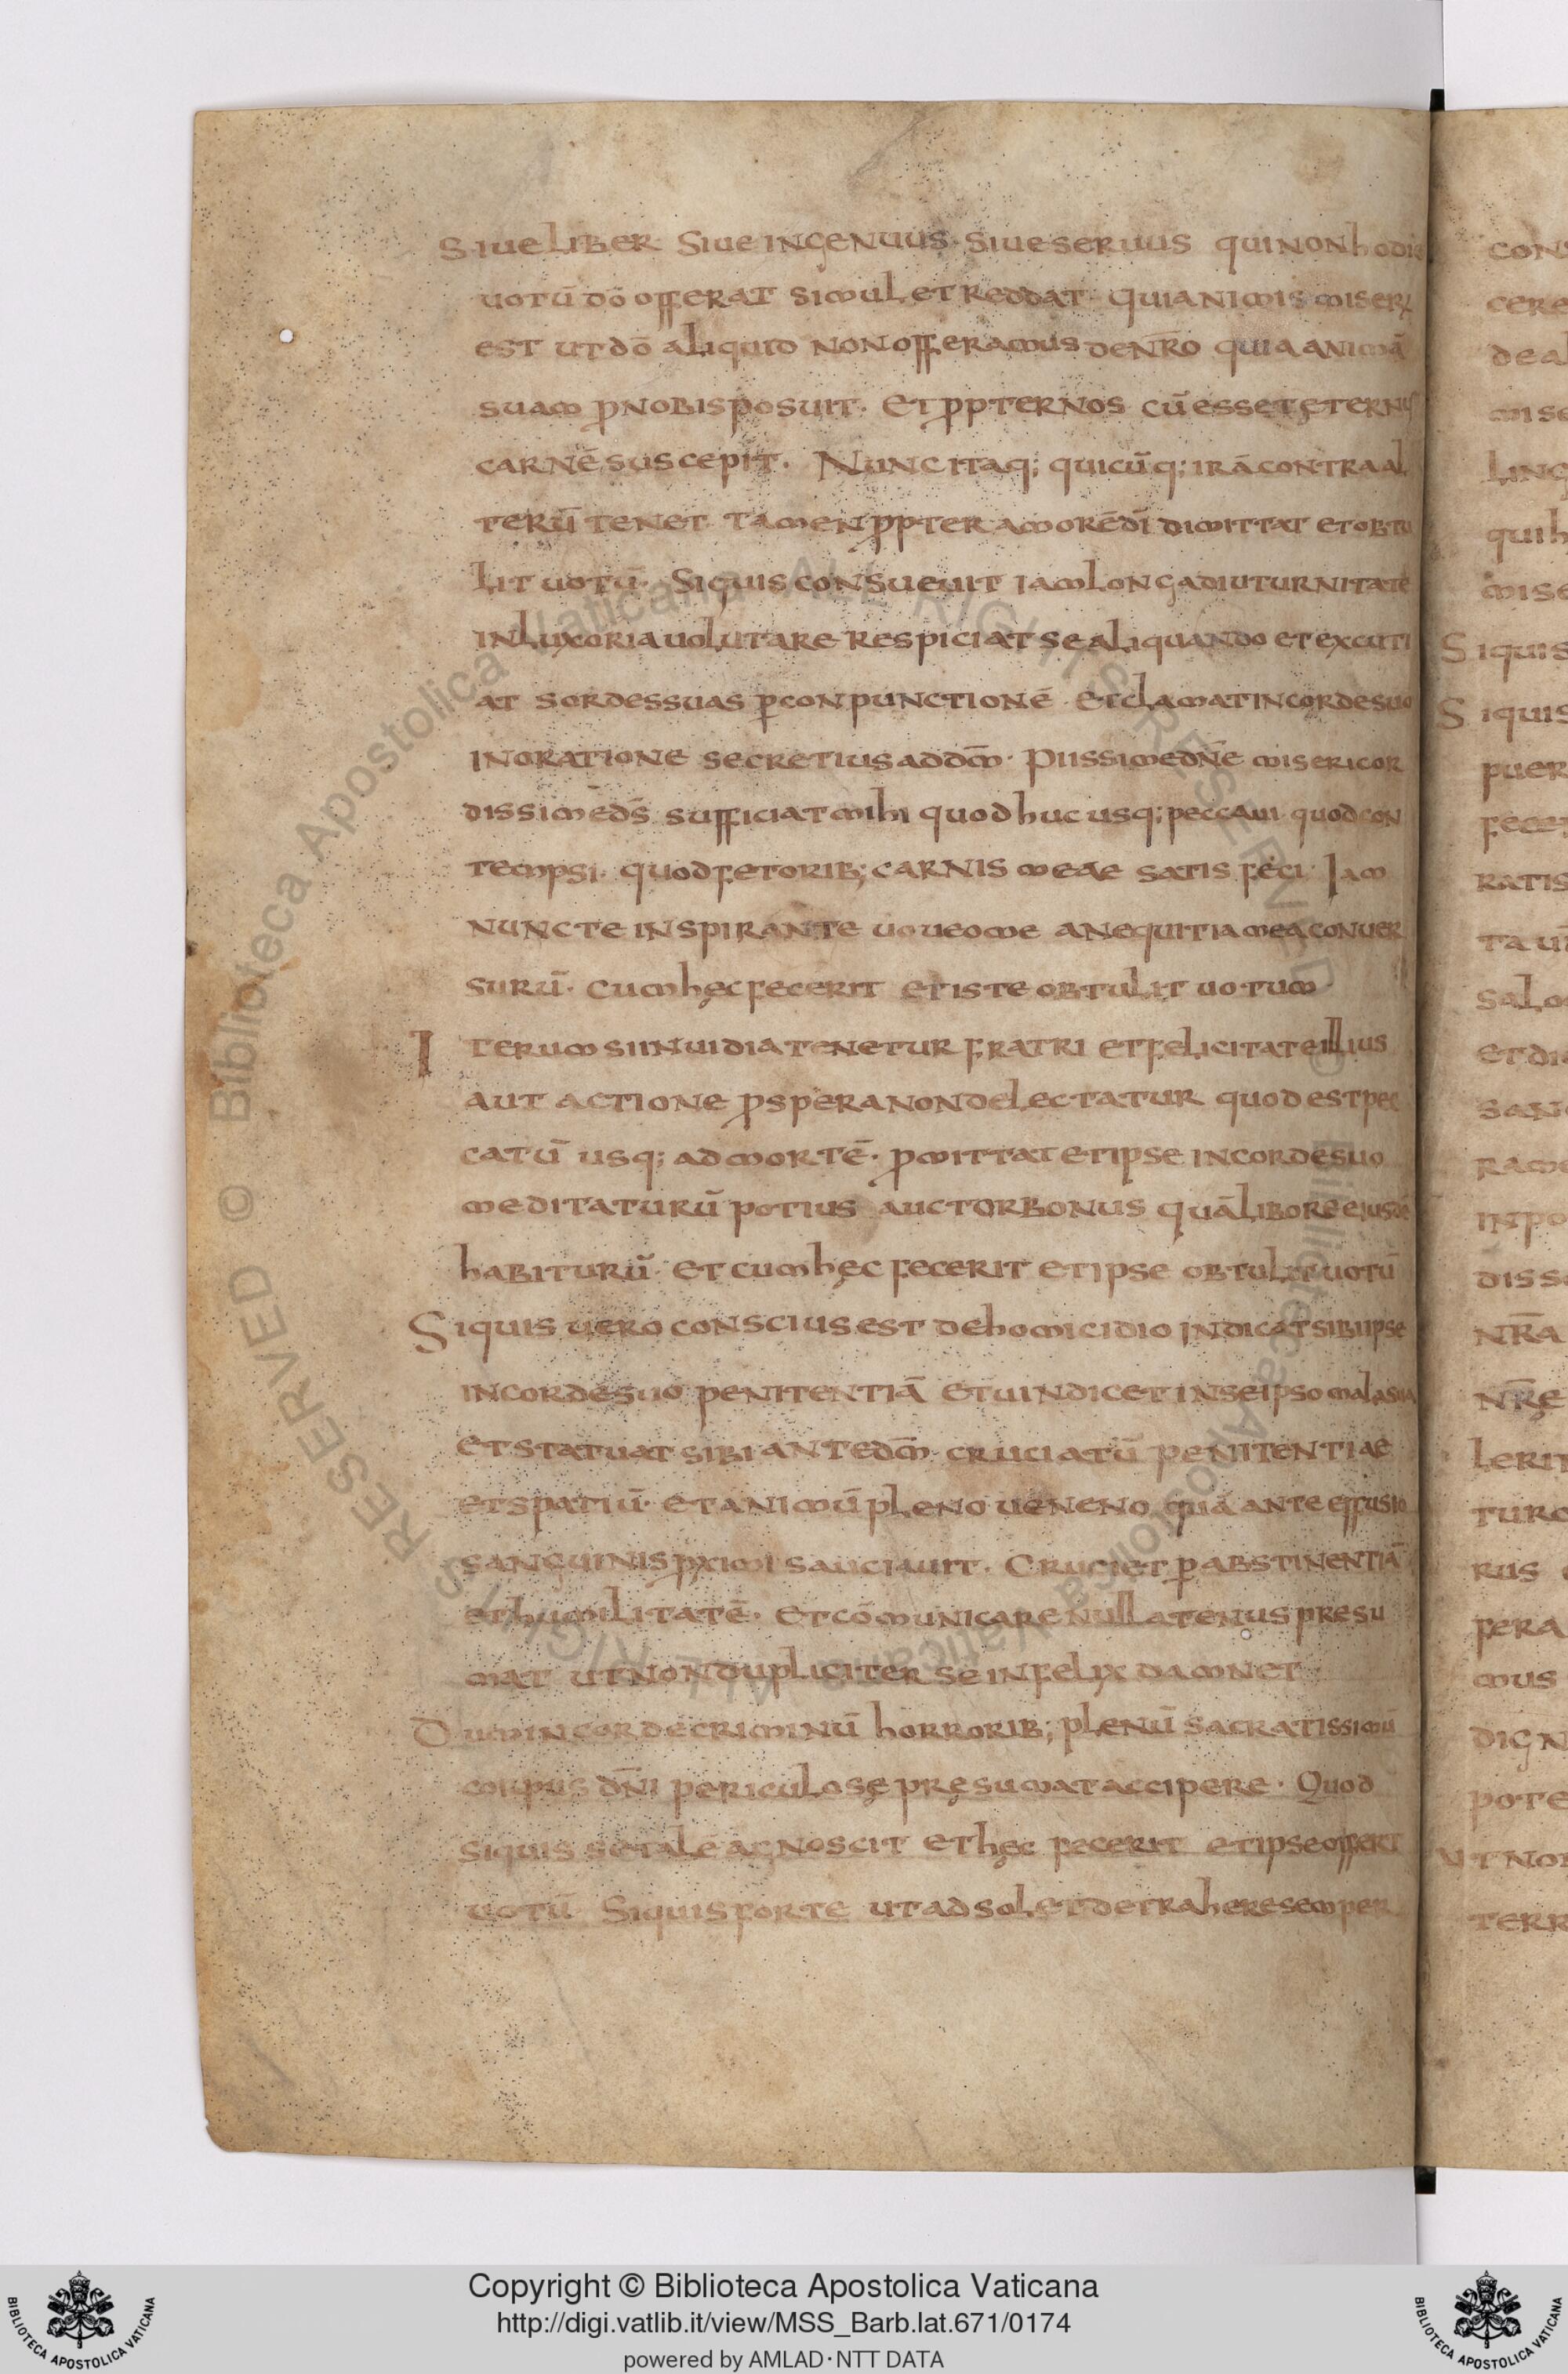 Siue liber Siue ingenuus · siue seruus qui non hodie
uotū dō offerat simul et reddat · quia nimis miserū
est ut dō aliquid non offeramus de nr̄o quia animā
suam pro nobis posuit · Et propter nos cū esset ęternus
carnē suscepit · Nunc itaq; quicūq; irā contra al
terū tenet tamen propter amorē dī dimittat et obtu
lit uotū · Siquis consueuit iam longa diuturnitate
in luxoria uolutare respiciat se aliquando et excuti
at sordes suas per conpunctionē et clamat in corde suo
in oratione secretius ad dm̄ · Piissime dn̄e misericor
dissime ds̄ sufficiat mihi quod huc usq; peccaui quod con
tempsi · quod fetorib; carnis meae satis feci · Iam
nunc te inspirante uoueo me a nequitia mea conuer
surū · cum hęc fecerit et iste obtulit uotum
Iterum si inuidia tenetur fratri et felicitate illius
aut actione prospera non delectatur quod est pec
catū usq; ad mortē · promittat et ipse in corde suo
meditaturū potius auctor bonus quā libore eiusdē
habiturū · et cum hęc fecerit et ipse obtulit uotū
Siquis uero conscius est de homicidio indicat sibi ipse
in corde suo penitentiā et uindicet in se ipso mala sua
et statuat sibi ante dm̄ · cruciatū penitentiae
et spatiū · et animū pleno ueneno quā ante effusio
sanguinis proximi sauciauit · Cruciet per abstinentiā
et humilitatē · Et cōmunicare nullatenus presu
mat ut non dupliciter se infelix damnet ·
Dum in corde criminū horrorib; plenū sacratissimū
corpus dn̄i periculosę pręsumat accipere · Quod
siquis se tale agnoscit et hęc fecerit et ipse offert
uotū Siquis forte ut adsolet detrahere semper
Copyright © Biblioteca Apostolica Vaticana
http://digi.vatlib.it/view/MSS_Barb.lat.671/0174
powered by AMLAD·NTT DATA